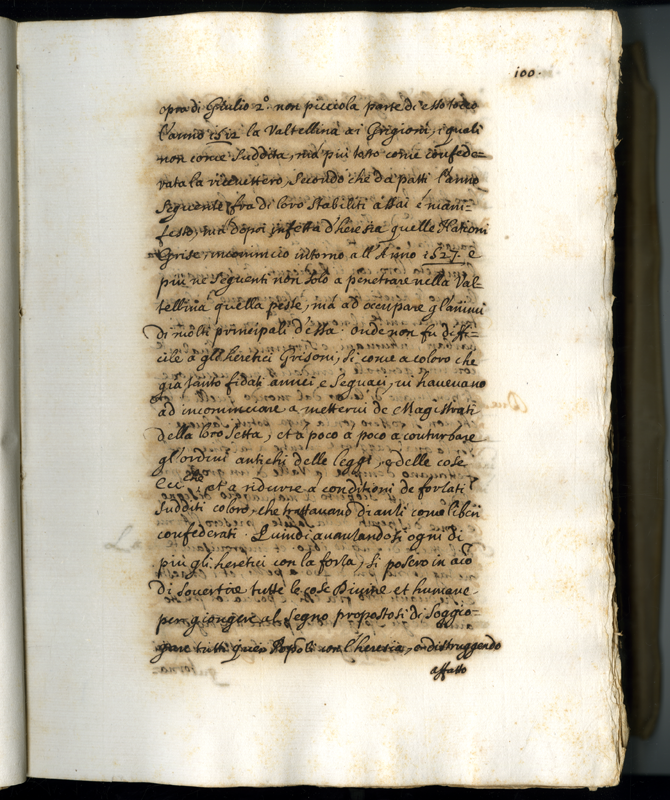 100.
opra di Giulio 2.º non piccola parte di esso tocco
l'anno 1512 la Valtellina ai Grigioni, i quali
non come suddita, mà piu tosto come confede=
rata la riceuettero, secondo che da patti l'anno
seguente frà di loro stabiliti assai è mani=
festo, mà dopoi infetta d'heresia quelle Nationi
Grise, incominciò intorno all'Anno 1527. e
più ne seguenti non solo a penetrare nella Val=
tellina quella peste, mà ad occupare gl'animi
di molti principali d'essa. onde non fù diffi=
cile a gli heretici Grisoni, si come a coloro che
già tanto fidati amici, e seguaci, ui haueuano
ad incominciare a metterui de Magistrati
della loro setta, et a poco a poco a conturbare
gl'ordini antichi delle leggi, e delle cose
Ecc.che, et a ridurre à conditioni de forzati
sudditi coloro, che trattauano dianzi come liberi
confederati. Quindi auanzandosi ogni di
più gli heretici con la forza, si posero in atto
di souertire tutte le cose Diuine et humane
per giongere al segno propostosi di soggio=
gare tutti quei Popoli con l'heresia, o distruggendo
affatto